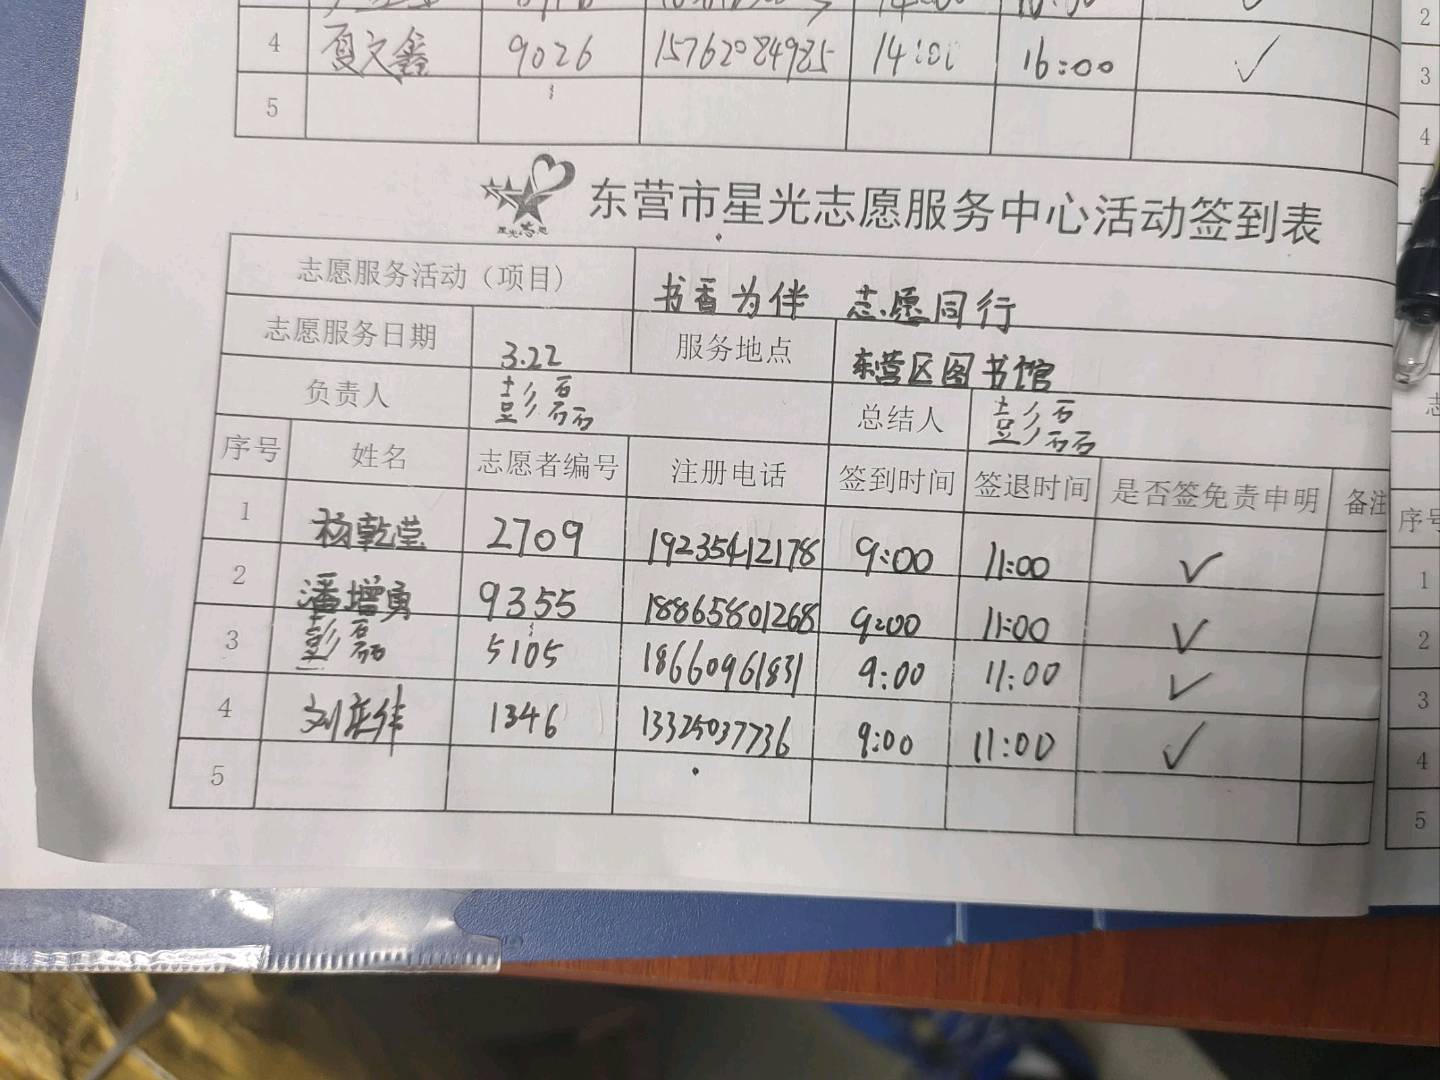 4 夏文鑫 9026 15762084985 14:00 16:00 ✓
5
东营市星光志愿服务中心活动签到表
志愿服务活动（项目） 书香为伴 志愿同行
志愿服务日期 3.22 服务地点 东营区图书馆
负责人 彭磊 总结人 彭磊
序号 姓名 志愿者编号 注册电话 签到时间 签退时间 是否签免责申明 备注
1 杨乾莹 2709 19235412178 9:00 11:00 ✓
2 潘增勇 9355 18865801268 9:00 11:00 ✓
3 彭磊 5105 18660961831 9:00 11:00 ✓
4 刘 1346 13325037736 9:00 11:00 ✓
5
2
3
4
序号
1
2
3
4
5